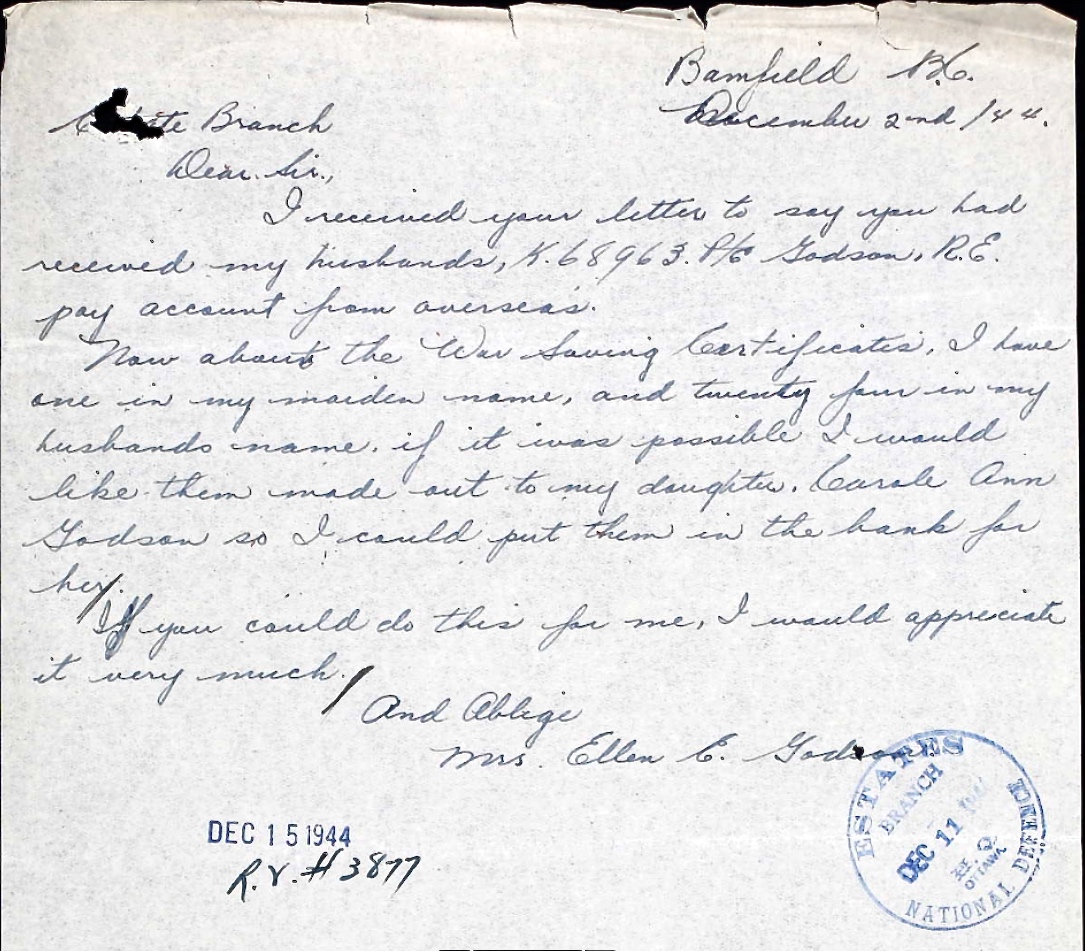 Bamfield B.C.
December 2nd /44.
Branch
Dear Sir.,
I received your letter to say you had
received my husbands, K.68963. Pte Godson, R.E.
pay account from overseas.
Now about the War Saving Certificates, I have
one in my maiden name, and twenty four in my
husbands name. if it was possible I would
like them made out to my daughter. Carole Ann
Godson so I could put them in the bank for
her.
If you could do this for me, I would appreciate
it very much.
And Oblige
Mrs. Ellen E. Godson
ESTATES
BRANCH
DEC 11
OTTAWA
NATIONAL DEFENCE
DEC 15 1944
R.V. # 3877